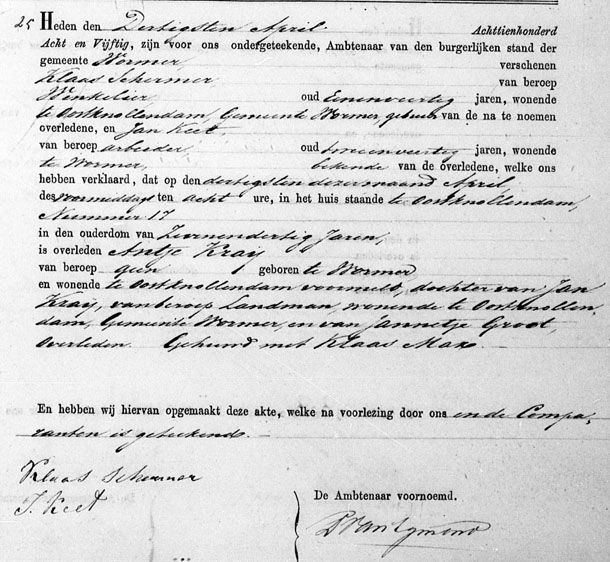 25 Heden den Dertigsten April Achttienhonderd
Acht en Vijftig, zijn voor ons ondergeteekende, Ambtenaar van den burgerlijken stand der
gemeente Wormer, verschenen
Klaas Schermer van beroep
Winkelier, oud Eenenveertig jaren, wonende
te Oostknollendam, Gemeente Wormer, gebuur van de na te noemen
overledene, en Jan Keet,
van beroep arbeider oud tweeenveertig jaren, wonende
te Wormer, bekende van de overledene, welke ons
hebben verklaard, dat op den dertigsten dezer maand April,
des voormiddags ten acht ure, in het huis staande te Oostknollendam,
Nummer 17
in den ouderdom van Zevenendertig Jaren,
is overleden Antje Kraij
van beroep geen geboren te Wormer
en wonende te Oostknollendam voormeld, dochter van Jan
Kraij, van beroep Landman, wonende te Oostknollen-
dam, Gemeente Wormer, en van Jannetje Groot,
overleden. Gehuwd met Klaas Max.
En hebben wij hiervan opgemaakt deze akte, welke na voorlezing door ons en de Compa-
ranten is geteekend.
Klaas Schermer
J. Keet
De Ambtenaar voornoemd.
P van Egmond